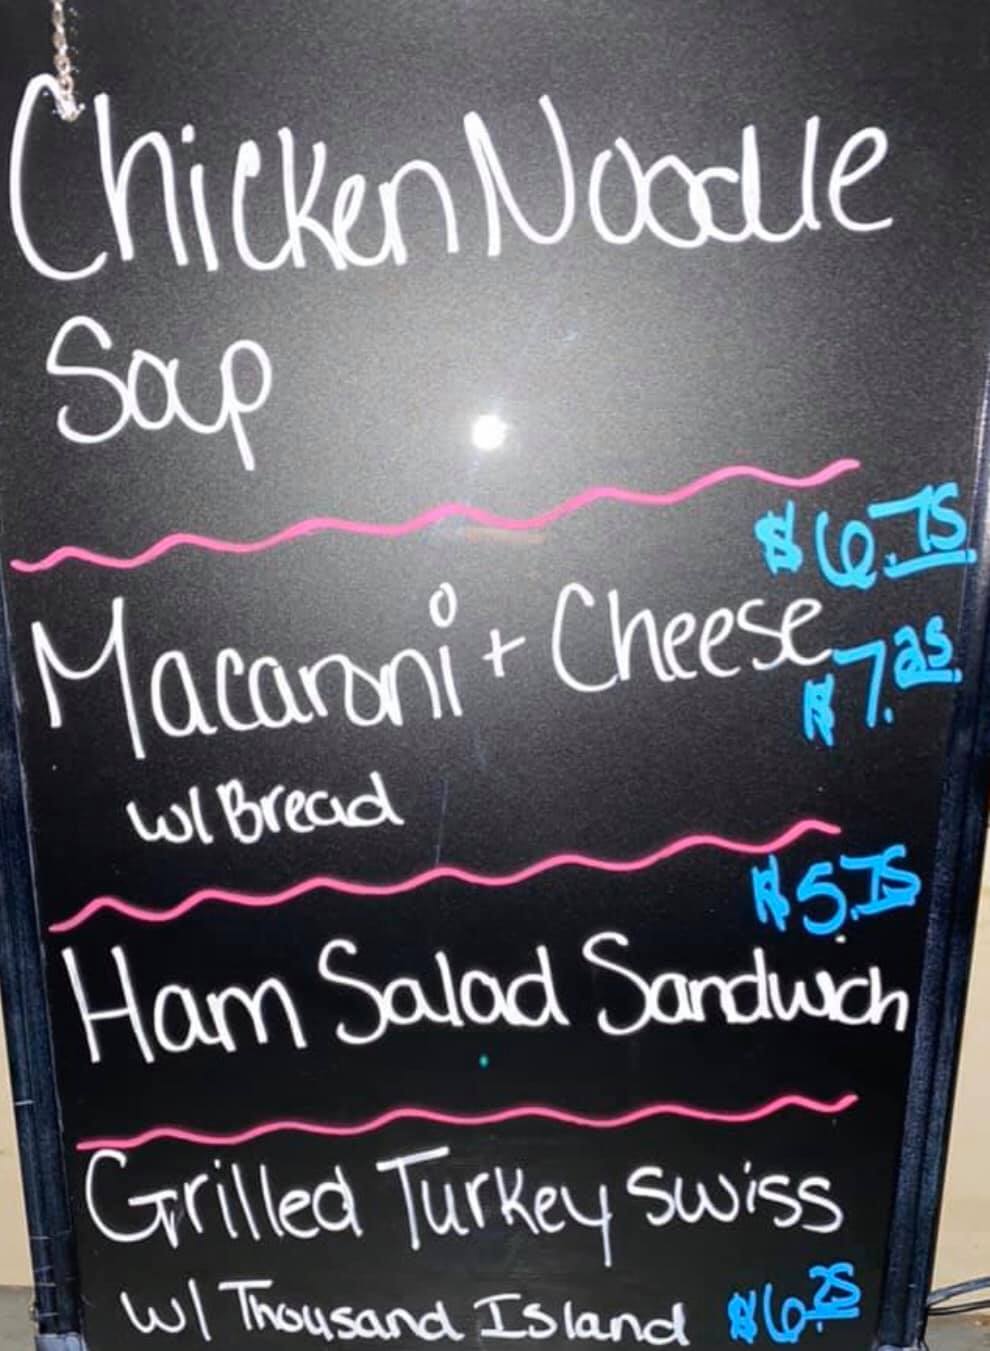 Chicken Noodle
Soup
$6.75
Macaroni + Cheese
$7.25
w/ Bread
$5.75
Ham Salad Sandwich
Grilled Turkey Swiss
w/ Thousand Island $6.25